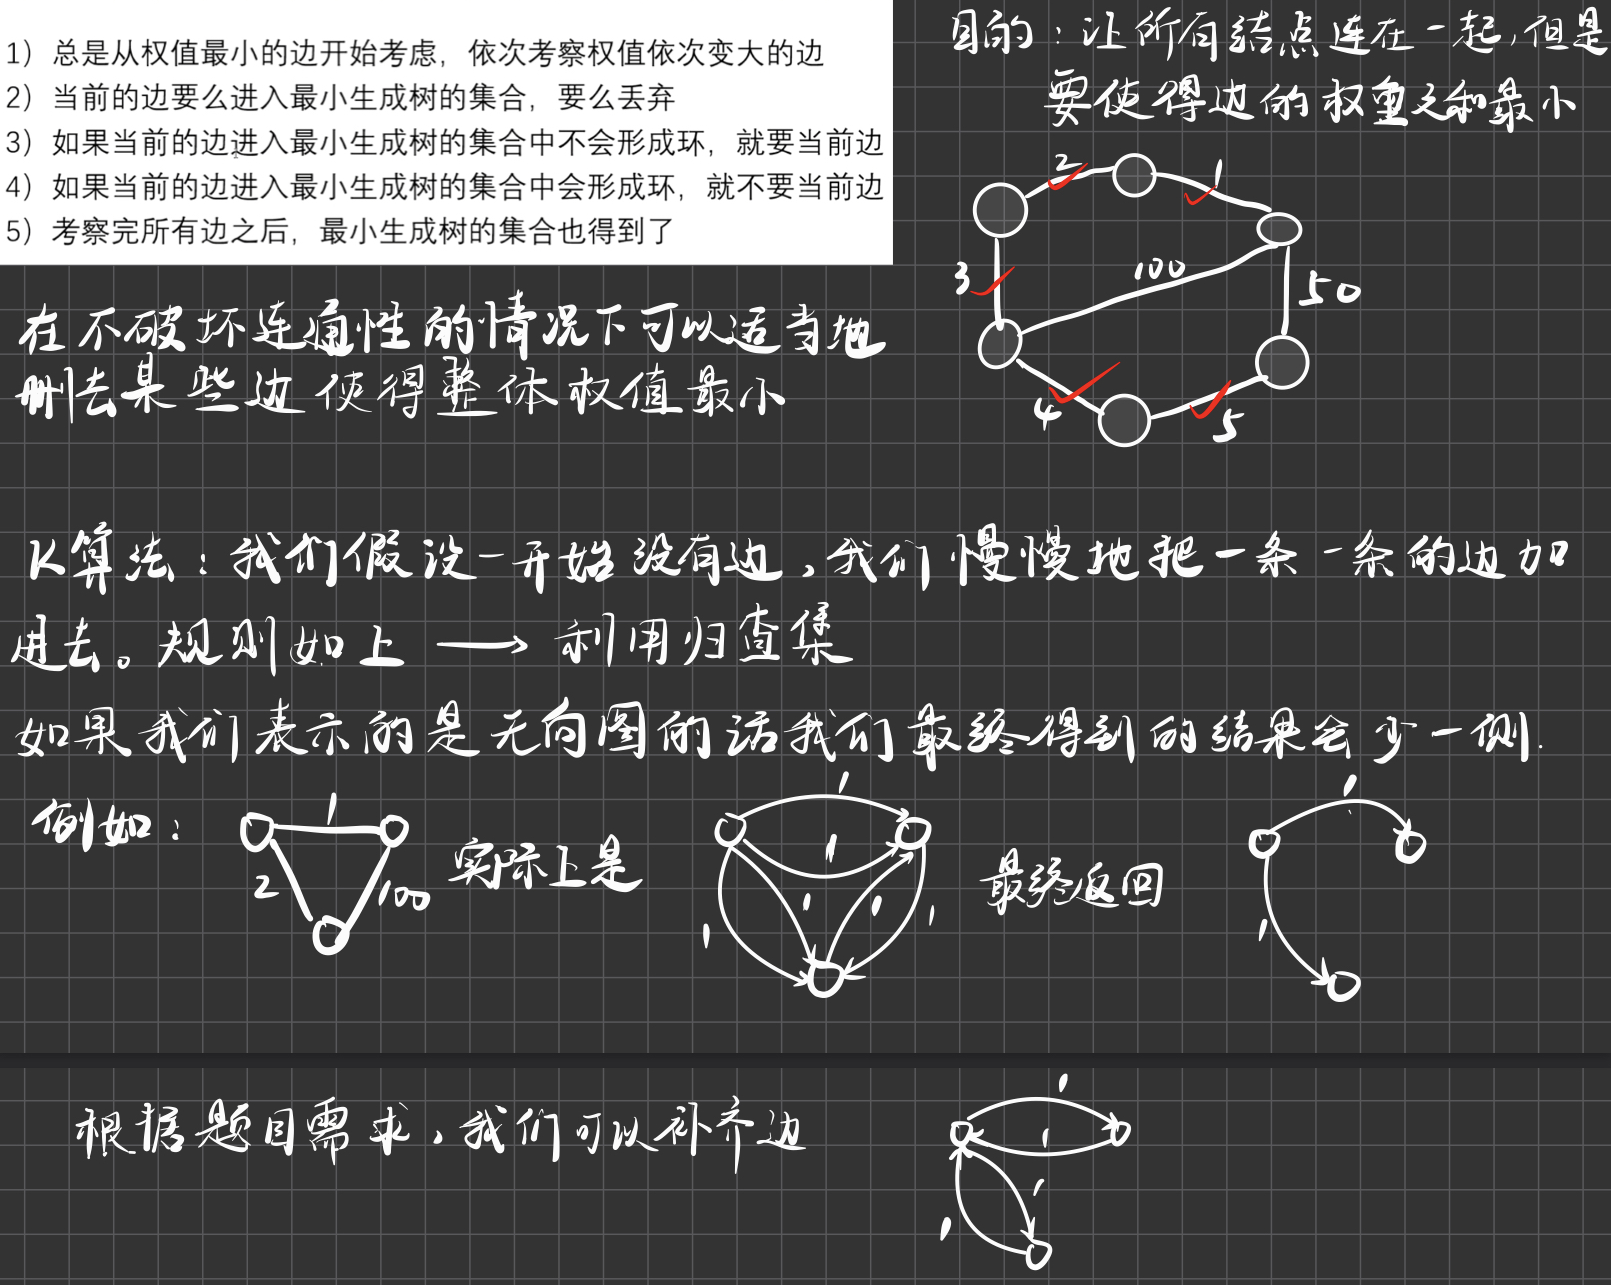 1）总是从权值最小的边开始考虑，依次考察权值依次变大的边
2）当前的边要么进入最小生成树的集合，要么丢弃
3）如果当前的边进入最小生成树的集合中不会形成环，就要当前边
4）如果当前的边进入最小生成树的集合中会形成环，就不要当前边
5）考察完所有边之后，最小生成树的集合也得到了
目的：让所有结点连在一起，但是
要使得边的权重之和最小
2
1
3
100
50
4
5
在不破坏连通性的情况下可以适当地
删去某些边使得整体权值最小
K算法：我们假设一开始没有边，我们慢慢地把一条一条的边加
进去。规则如上 → 利用归查集
如果我们表示的是无向图的话我们最终得到的结果会少一侧.
例如：
1
2
100
实际上是
1
1
1
1
1
1
最终返回
1
1
根据题目需求，我们可以补齐边
1
1
1
1